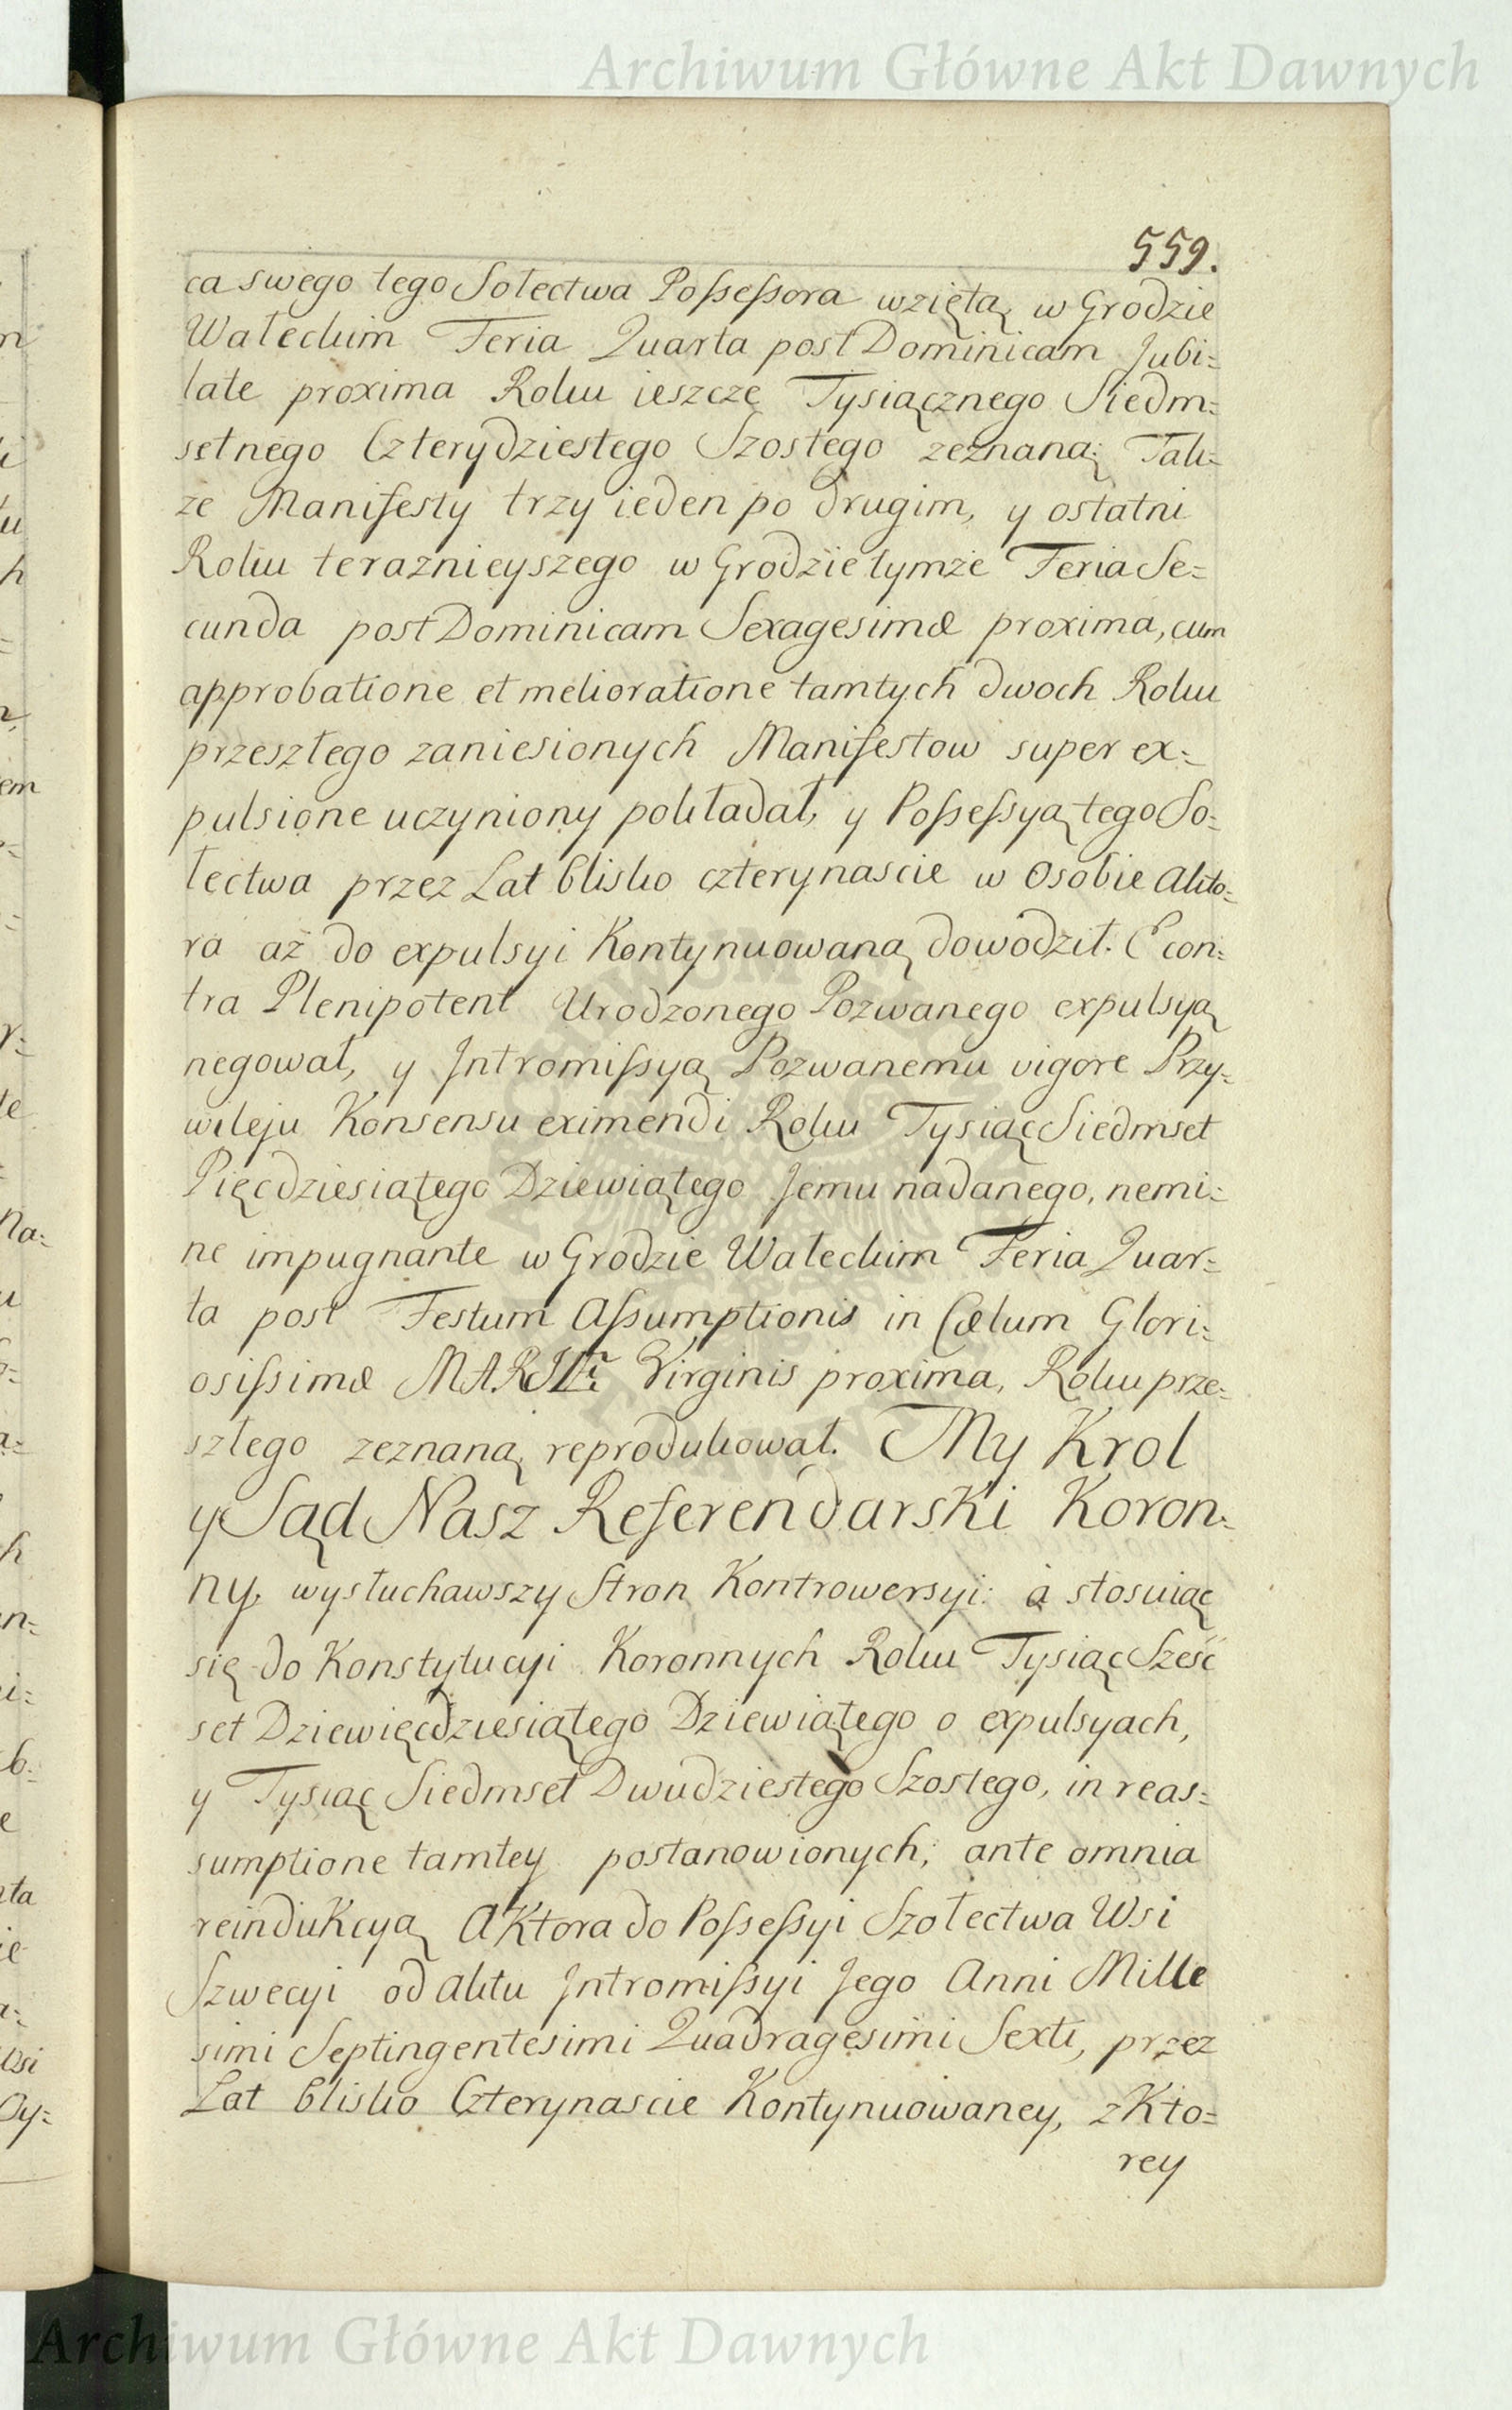 Archiwum Główne Akt Dawnych
559.
ca swego tego Sołectwa Possessora wziętą, w Grodzie
Wałeckim Feria Quarta post Dominicam Jubi=
late proxima Roku ieszcze Tysiącznego Siedm=
setnego Czterydziestego Szostego zeznaną; Tak=
że Manifesty trzy ieden po drugim, y ostatni
Roku teraznieyszego w Grodzie tymże Feria Se=
cunda post Dominicam Sexagesimæ proxima, cum
approbatione et melioratione tamtych dwoch Roku
przeszłego zaniesionych Manifestow super ex=
pulsione uczyniony pokładał, y Possessyą tego So=
łectwa przez Lat blisko czterynascie w Osobie Akto=
ra aż do expulsyi Kontynuowaną dowodził. E con=
tra Plenipotent Urodzonego Pozwanego expulsyą
negował, y Intromissyą Pozwanemu vigore Przy=
wileju Konsensu eximendi Roku Tysiąc Siedmset
Pięcdziesiątego Dziewiątego Jemu nadanego, nemi=
ne impugnante w Grodzie Wałeckim Feria Quar=
ta post Festum Assumptionis in Cælum Glori=
osissimæ MARIÆ Virginis proxima, Roku prze=
szłego zeznaną reprodukował. My Krol
y Sąd Nasz Referendarski Koron=
ny, wysłuchawszy Stron Kontrowersyi: a stosuiąc
się do Konstytucyi Koronnych Roku Tysiąc Sześć
set Dziewięcdziesiątego Dziewiątego o expulsyach,
y Tysiąc Siedmset Dwudziestego Szostego, in reas=
sumptione tamtey postanowionych; ante omnia
reindukcyą Aktora do Possessyi Szołectwa Wsi
Szwecyi od Aktu Intromissyi Jego Anni Mille
simi Septingentesimi Quadragesimi Sexti, przez
Lat blisko Czterynascie Kontynuowaney, z Kto=
rey
Archiwum Główne Akt Dawnych